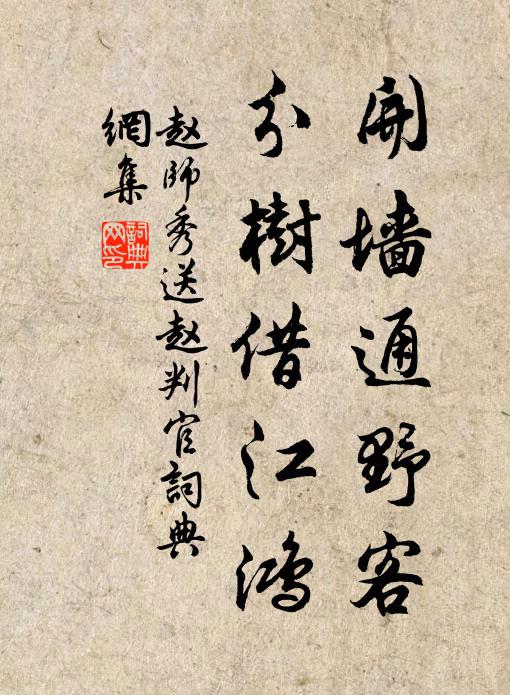 開墙通野客
分樹借江鴻
赵師秀送赵判官詞典
網集
詞典
网印